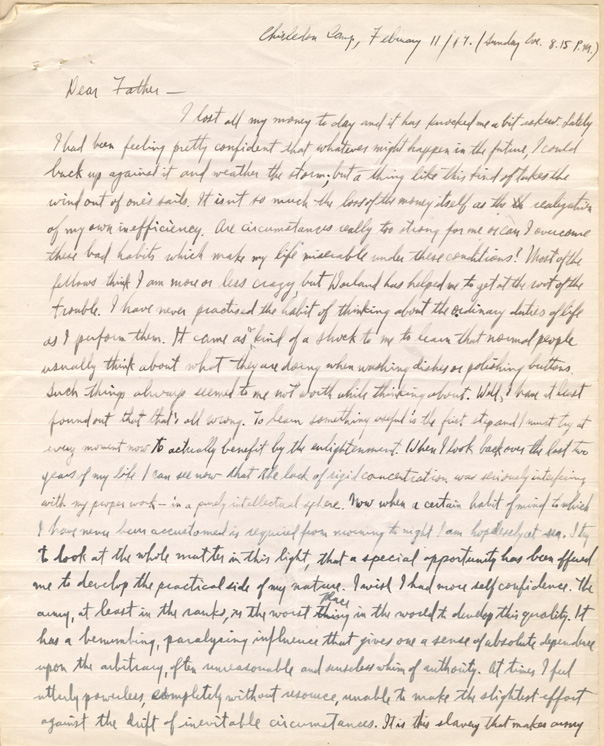 Chisledon Camp, February 11/17. (Sunday Eve. 8.15 P.M.)
Dear Father —
I lost all my money to day and it has knocked me a bit askew. Lately
I had been feeling pretty confident that whatever might happen in the future, I could
buck up against it and weather the storm; but a thing like this kind of takes the
wind out of one's sails. It isn't so much the loss of the money itself as the realization
of my own inefficiency. Are circumstances really too strong for me or can I overcome
these bad habits which make my life miserable under these conditions? Most of the
fellows think I am more or less crazy, but has helped me to get at the root of the
trouble. I have never practised the habit of thinking about the ordinary duties of life
as I perform them. It came as kind of a shock to me to learn that normal people
usually think about what they are doing when washing dishes or polishing buttons.
Such things always seemed to me not worth while thinking about. Well, I have at least
found out that that's all wrong. To learn something useful is the first step and I must try at
every moment now to actually benefit by the enlightenment. When I look back over the last two
years of my life I can see now that the lack of rigid concentration was seriously interfering
with my proper work – in a purely intellectual sphere. Now when a certain habit of mind to which
I have never been accustomed is required from morning to night I am hopelessly at sea. I try
to look at the whole matter in this light, that a special opportunity has been offered
me to develop the practical side of my nature. I wish I had more self confidence. The
army, at least in the ranks, is the worst place in the world to develop this quality. It
has a benumbing, paralysing influence that gives one a sense of absolute dependence
upon the arbitrary, often unreasonable and senseless whim of authority. At times I feel
utterly powerless, completely without resource, unable to make the slightest effort
against the drift of inevitable circumstances. It is this slavery that makes army